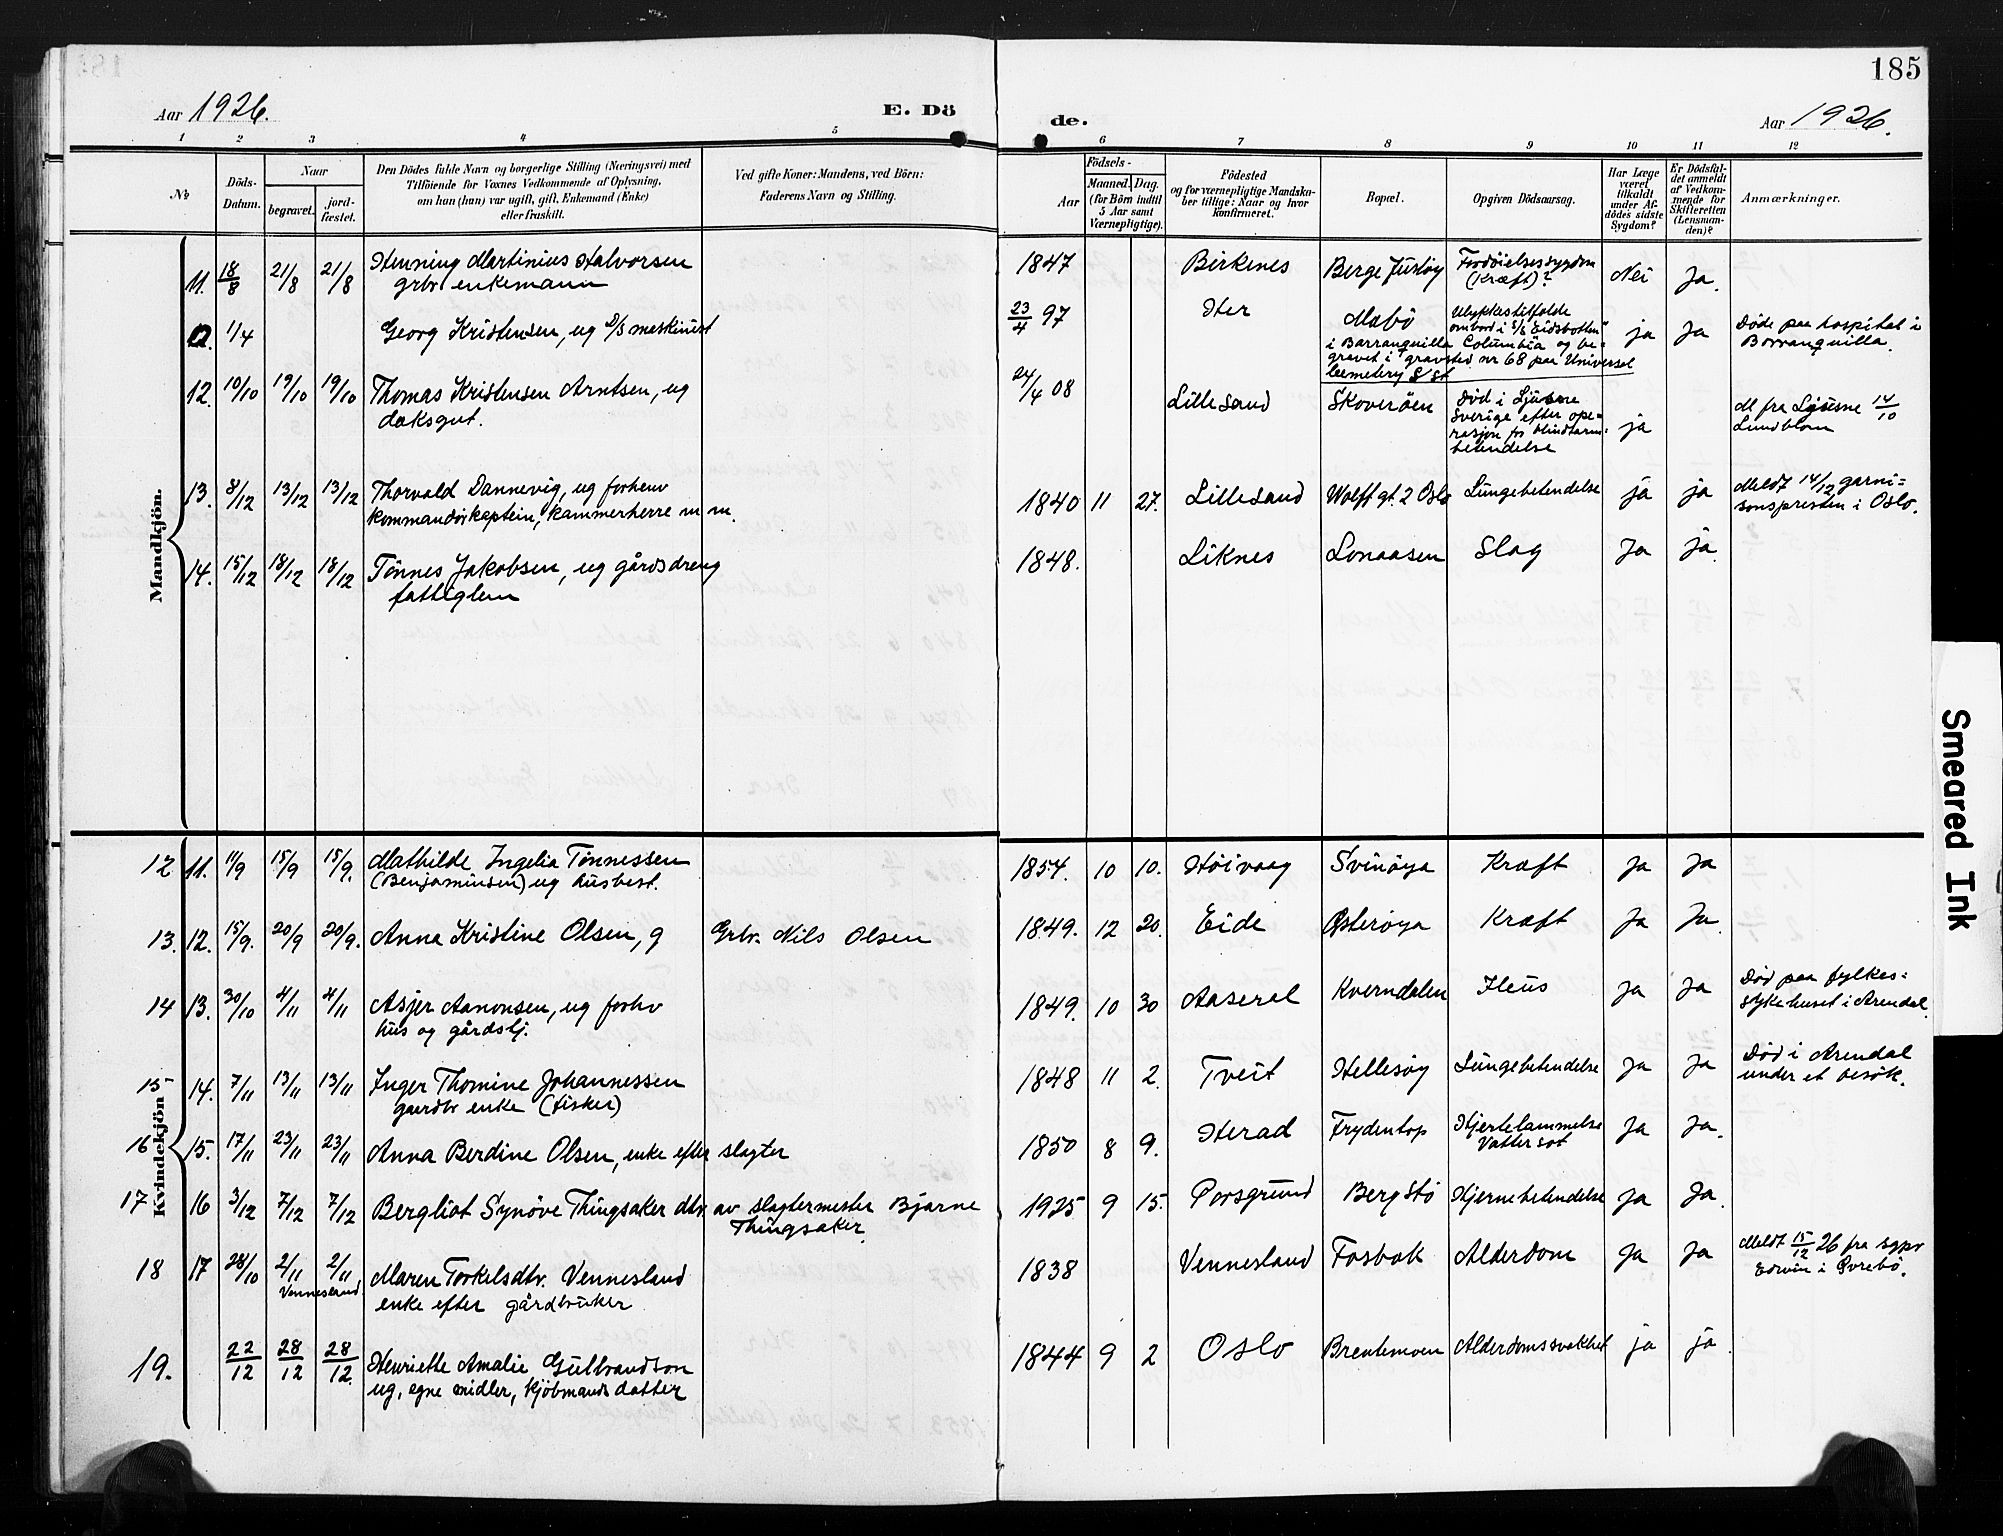 185
Aar 1926.
E. Dö
de.
Aar 1926.
1 2 3 4 5 6 7 8 9 10 11 12
No
Döds-
Datum.
Naar
begravet.
jord-
fæstet.
Den Dödes fulde Navn og borgerlige Stilling (Næringsvei) med
Tilföiende for Voxnes Vedkommende af Oplysning,
om han (hun) var ugift, gift, Enkemand (Enke)
eller fraskilt.
Ved gifte Koner: Mandens, ved Börn:
Faderens Navn og Stilling.
Födsels-
Aar
Maaned. Dag.
(for Börn indtil
5 Aar samt
Værnepligtige).
Födested
og for værnepligtige Mandska-
ber tillige: Naar og hvor
konfirmeret.
Bopæl.
Opgiven Dödsaarsag.
Har Læge
været
tilkaldt
under Af-
dödes sidste
Sygdom?
Er Dödsfal-
det anmeldt
af Vedkom-
mende for
Skifteretten
(Lensman-
den)?
Anmærkninger.
Mandkjön.
11. 18/8 21/8 21/8 Henning Martinius Halvorsen
grbr enkemann
1847 Birkenes Berge Justøy Fordöielsessygdom
(Kræft)? Nei Ja.
a. 1/4 Georg Kristensen, ug D/S maskinist
23/4 97 Her Mæbö Ulykkestilfelde
ombord i S/S "Eidsbotten"
i Barranquilla Columbia og be-
gravet i gravsted nr 68 paa Universel
Cemetery S/St
ja Ja Døde paa hospital i
Barranquilla.
12. 10/10 19/10 19/10 Thomas Kristensen Arntsen, ug
dæksgut.
24/4 08 Lillesand Skoverøen Død i Ljusne
Sverige efter ope-
rasjon for blindtarm-
betendelse
ja
M fra Ljusne 14/10
Lundblom
13. 8/12 13/12 13/12 Thorvald Dannevig, ug forhenv
kommandørkaptein, kammerherre m m.
1840 11 27. Lillesand Wolffgt. 2 Oslo Lungebetendelse ja ja Meldt 14/12 garni-
sonspresten i Oslo.
14. 15/12 18/12 18/12 Tönnes Jakobsen, ug gårdsdreng
fattiglem
1848. Liknes Lonaasen Slag Ja ja.
Kvindekjön
12 11. 11/9 15/9 15/9. Mathilde Ingelia Tönnessen
(Benjaminsen) ug husbest.
1854. 10 10. Höivaag Svinöya Kræft Ja Ja
13. 12. 15/9. 20/9 20/9. Anna Kristine Olsen, g Grbr. Nils Olsen
1849. 12 20. Eide Østerøya Kræft Ja Ja.
14 13. 30/10 4/11 4/11 Asjer Aanonsen, ug forhv
hus og gårdslj.
1849. 10 30 Aaseral Kverndalen Ileus Ja Ja Død paa fylkes-
sykehuset i Arendal.
15 14. 7/11 13/11 13/11 Inger Thomine Johannessen
gaardbr enke (fisker)
1848 11 2. Tveit Hellesøy Lungebetendelse Ja Ja Død i Arendal
under et besök.
16 15. 17/11 23/11 23/11 Anna Berdine Olsen, enke efter slagter
1850 8 9. Herad Frydentop Hjertelammelse
Vattersot Ja Ja.
17 16 3/12 7/12 7/12 Bergliot Synöve Thingsaker dtr av slagtermester Bjarne
Thingsaker.
1925 9 15. Porsgrund Bergstö Hjernebetendelse Ja Ja.
18 17 28/10 2/11 2/11 Maren Torkelsdtr. Vennesland
Vennesland.
enke efter gårdbruker
1838 Vennesland Fosbæk Alderdom Ja Ja Meldt 15/12 26 fra sgpr
Edwin i Øvrebö.
19. 22/12 28/12 28/12. Henriette Amalie Gulbrandson
ug, egne midler, kjöbmands datter
1844 9 2 Oslo Brentemoen Alderdomssvakhet ja ja
Smeared Ink